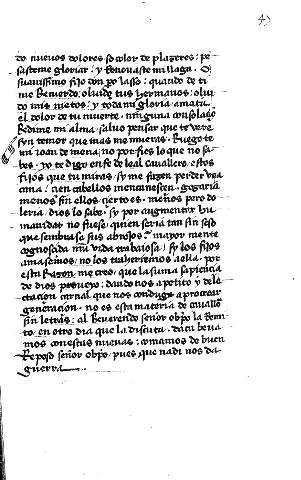 to nuevos dolores so color de plazeres: pe
saste me gloriar: y Renovaste mi llaga. O
suavissimo fijo don po lasso: quando de ti
me Recuerdo: oluido tus hermanos: olui
do mis nietos: y toda mi gloria amata
el dolor de tu muerte. ninguna consolaçio
Redime mi alma: saluo pensar que te vere
syn temor que mas me mueras. Ruego te
mi ioan de mena: no porfies lo que no sa
bes. yo te digo en fe de leal cauallero. estos
fijos que tu miras: sy me fizen perder vna
cana: cien cabellos me
menos sin ellos cierto es. menos pero do
leria. dios lo sabe. sy por augmentar hu
manidat no fuese. quien seria tan sin seso
que sembrase sus abrojos. mayor mente
cognosçida mi vida trabaiosa: sy los fijos
amasemos: no los traheriemos a ella. por
esta Razon me creo. que la suma sapiencia
de dios proueyo: dando nos apetito y dele
ctacion carnal que nos conduga a procrear
generacion. no es esta materia de cauallo
sin letras: al Reuerendo señor obpo la Remi
to. en otro dia que la discuta. dara
mos con estas nueuas: tomamos de buen
Reposo señor obpo. pues que nadi nos da
guerra